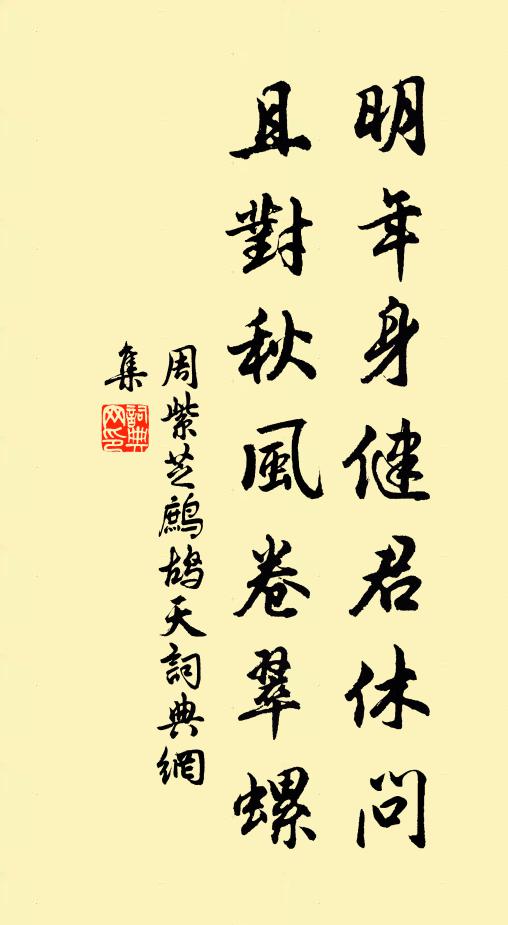 明年身健君休問
且對秋風卷翠螺
周紫芝鷓鴣天詞典網
集
詞典
网印